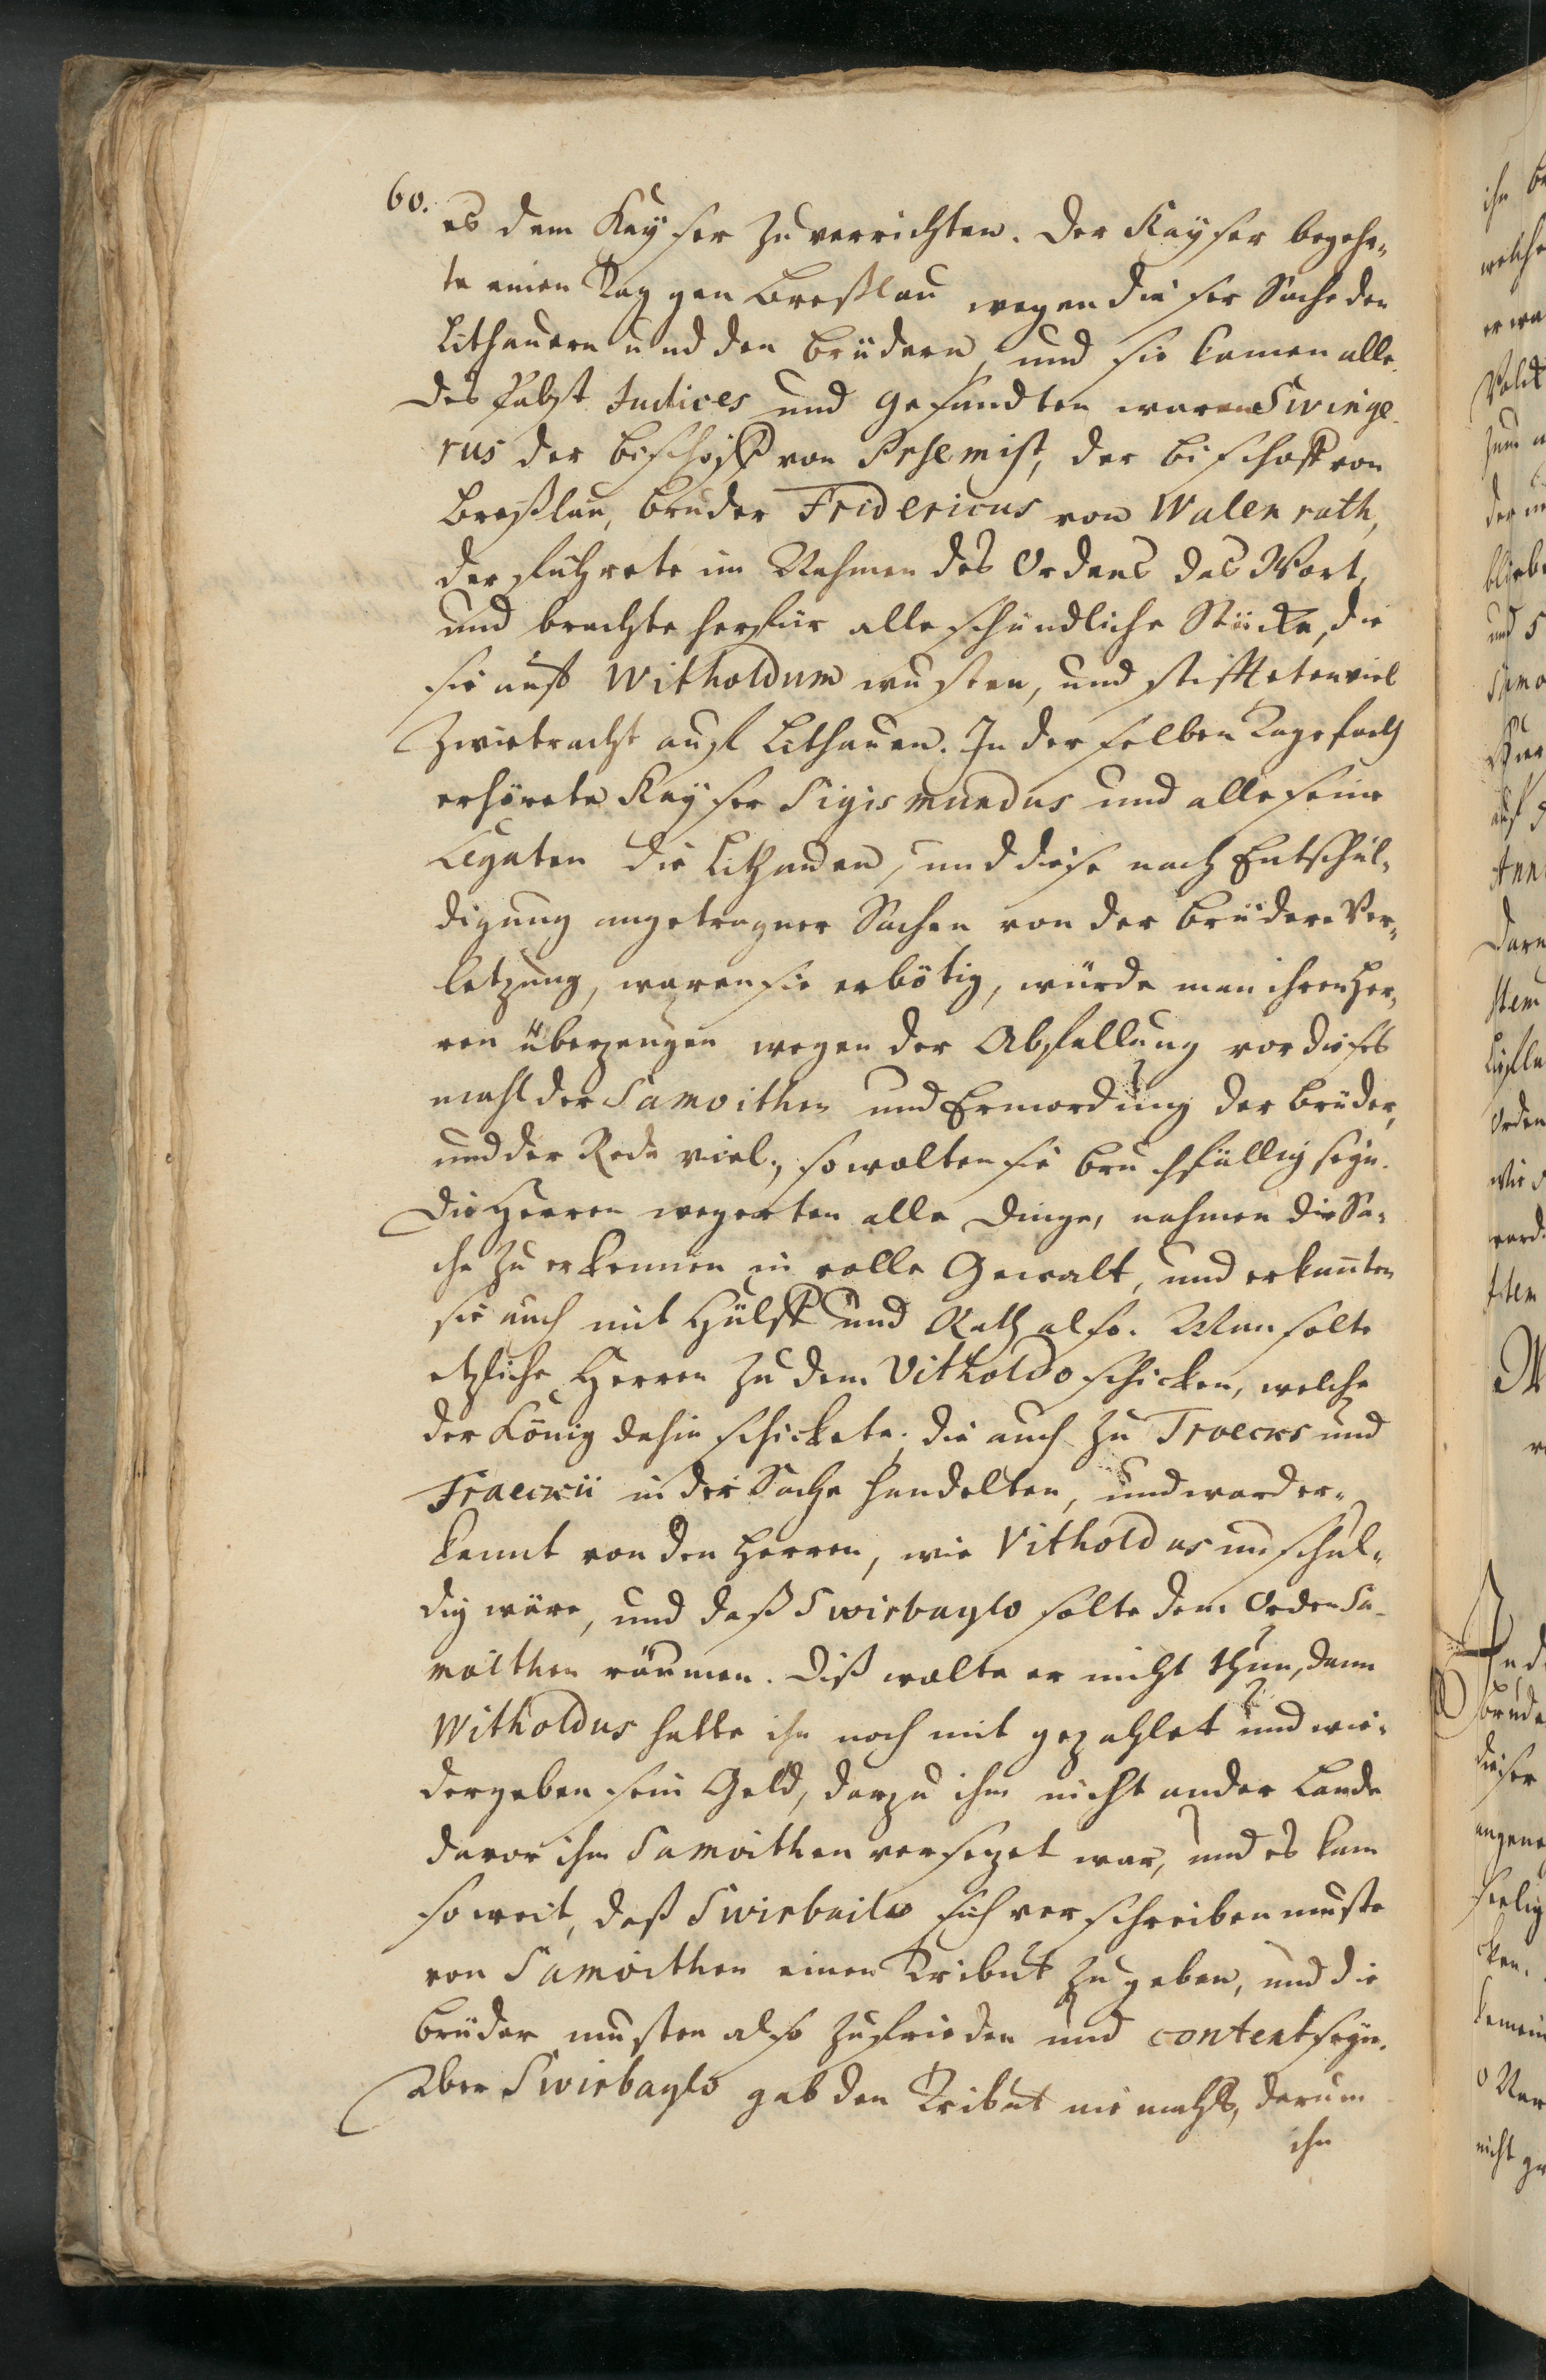 60.
es dem Kayser zu verrichten. Der Kayser begehr„
te einen Tag gen Breßlau wegen dieser Sache den
Lithauern und den Brüdern, und sie kamen alle.
Des Pabst Judices und Gesandten waren Swinge-
rus der Bischoff von Prsemist, der Bischoff von
Breßlau, Bruder Fridericus von Walenrath,
der fuhrete im Nahmen des Ordens das Wort,
und brachte herfür alle schändliche Stücke, die
sie auff Witholdum wusten, und stiffteten viel
Zwietracht auff Lithauen. In derselben Tagefarth
erhörete Kayser Sigismundus und alle seine
Legaten die Lithauen, und diese nach Entschul„
digung angetragner Sachen von der Brüder Ver„
letzung, waren sie erbötig, würde man ihren Her„
ren überzeugen wegen der Abfallung vor dieses
mahl der Samoithen und Ermordung der Brüder,
und der Rede viel, so wolten sie bruchfällig seyn.
Die Herren wegerten alle Dinge, nahmen die Sa„
che zu erkennen in volle Gewalt, und erkannten
sie auch mit Hülff und Rath also. Man solte
etzliche Herren zu dem Vitholdo schicken, welche
der König dahin schickete, die auch zu Troecks und
Fraeckii in der Sache handelten, und ward er„
kannt von den Herren, wie Vitholdus unschul„
dig wäre, und daß Swirbaylo solte dem Orden Sa-
moithen räumen. Diß wolte er nicht thun, dann
Witholdus hatte ihn noch nit gezahlet und wie„
dergeben sein Geld, darzu ihm nicht ander Lande
davor ihm Samoithen versezet war, und es kam
so weit, daß Swirbailo sich verschreiben muste
von Samoithen einen Tribut zu geben, und die
Brüder musten also zufrieden und content seyn.
Aber Swirbaylo gab den Tribut niemahls, darum
ihn